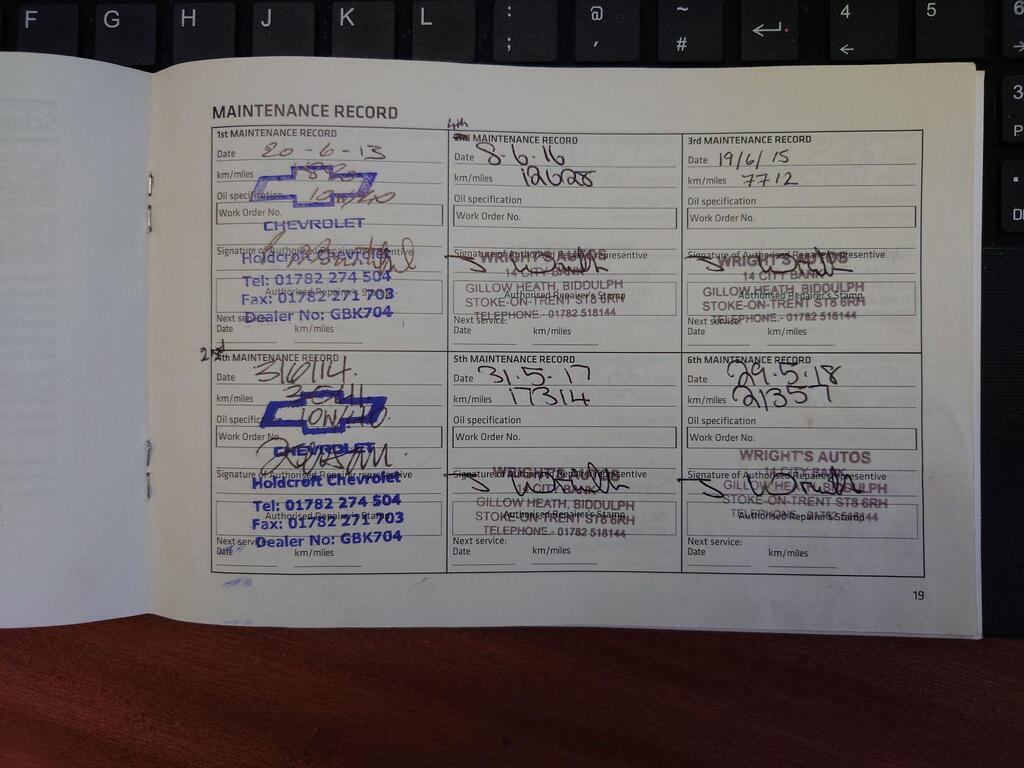 F G H J K L : ; @ , ~ # 4 5 6
3
P
MAINTENANCE RECORD
1st MAINTENANCE RECORD
Date 20-6-13
km/miles
Oil specification 10w/40
Work Order No.
CHEVROLET
Signature of Authorised Repairer Representative
Holdcroft Chevrolet
Tel: 01782 274 504
Authorised Repairer's Stamp
Fax: 01782 271 703
Dealer No: GBK704
Next service:
Date km/miles
4th MAINTENANCE RECORD
Date 8.6.16
km/miles 12628
Oil specification
Work Order No.
Signature of Authorised Repairer Representative
WRIGHT'S AUTOS
14 CITY BANK
GILLOW HEATH, BIDDULPH
Authorised Repairer's Stamp
STOKE-ON-TRENT ST8 6RH
TELEPHONE - 01782 518144
Next service:
Date km/miles
3rd MAINTENANCE RECORD
Date 19/6/15
km/miles 7712
Oil specification
Work Order No.
Signature of Authorised Repairer Representative
WRIGHT'S AUTOS
14 CITY BANK
GILLOW HEATH, BIDDULPH
Authorised Repairer's Stamp
STOKE-ON-TRENT ST8 6RH
TELEPHONE - 01782 518144
Next service:
Date km/miles
2nd
4th MAINTENANCE RECORD
Date 3/6/14.
km/miles
Oil specification 10W/40.
Work Order No.
CHEVROLET
Signature of Authorised Repairer Representative
Holdcroft Chevrolet
Tel: 01782 274 504
Authorised Repairer's Stamp
Fax: 01782 271 703
Dealer No: GBK704
Next service:
Date km/miles
5th MAINTENANCE RECORD
Date 31.5.17
km/miles 17314
Oil specification
Work Order No.
Signature of Authorised Repairer Representative
WRIGHT'S AUTOS
14 CITY BANK
GILLOW HEATH, BIDDULPH
Authorised Repairer's Stamp
STOKE-ON-TRENT ST8 6RH
TELEPHONE - 01782 518144
Next service:
Date km/miles
6th MAINTENANCE RECORD
Date 29.5.18
km/miles 21357
Oil specification
Work Order No.
WRIGHT'S AUTOS
Signature of Authorised Repairer Representative
14 CITY BANK
GILLOW HEATH, BIDDULPH
STOKE-ON-TRENT ST8 6RH
Authorised Repairer's Stamp
TELEPHONE - 01782 518144
Next service:
Date km/miles
19